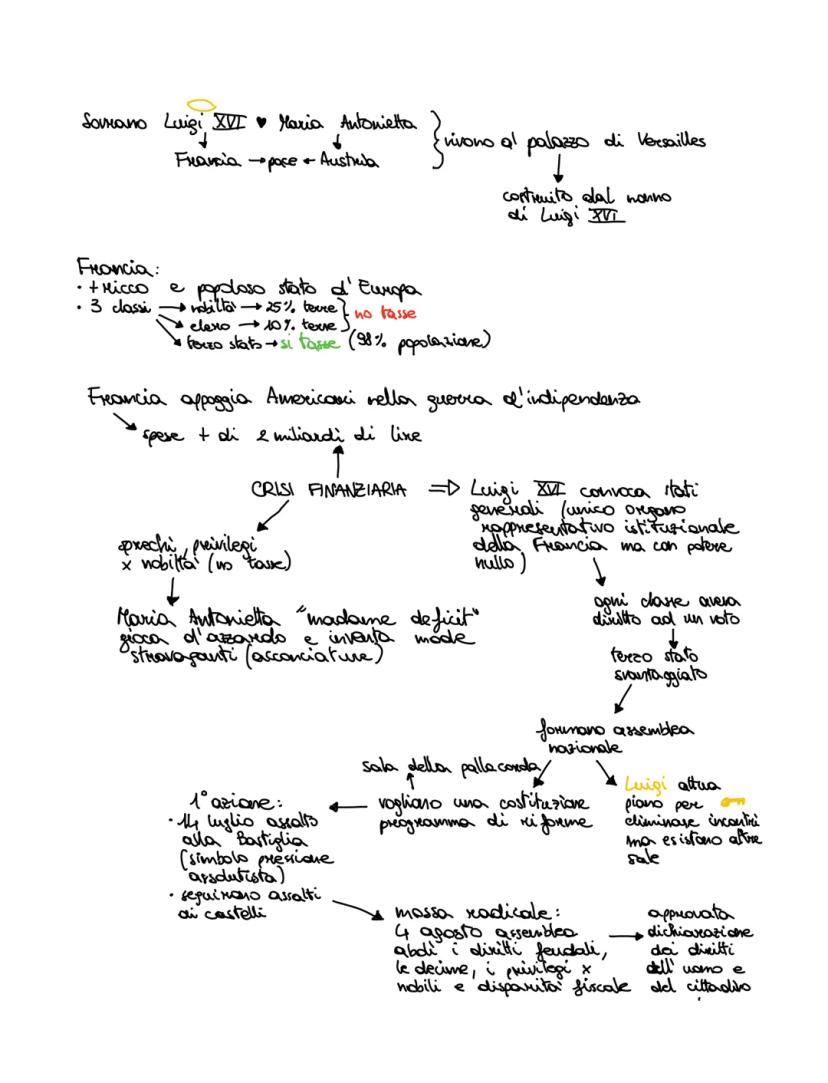 Sovrano Luigi XVI ♥ Maria Antonietta
Francia → pace ← Austria
vivono al palazzo di Versailles
costruito dal nonno
di Luigi XVI
Francia:
• + ricco e popoloso stato d'Europa
• 3 classi → nobiltà → 25% terre
→ clero → 10% terre
no tasse
→ terzo stato → si tasse (98% popolazione)
Francia appoggia Americani nella guerra d'indipendenza
spese + di 2 miliardi di lire
CRISI FINANZIARIA ⇒ Luigi XVI convoca stati
generali (unico organo
rappresentativo istituzionale
della Francia ma con potere
nullo)
sprechi, privilegi
x nobiltà (no tasse)
Maria Antonietta "madame deficit"
gioca d'azzardo e inventa mode
stravaganti (acconciature)
ogni classe aveva
diritto ad un voto
terzo stato
svantaggiato
formano assemblea
nazionale
sala della pallacorda
vogliono una costituzione
programma di riforme
Luigi attua
piano per
eliminare incontri
ma esistono altre
sale
1° azione:
• 14 luglio assalto
alla Bastiglia
(simbolo pressione
assolutista)
• seguirono assalti
ai castelli
mossa radicale:
4 agosto assemblea
abolì i diritti feudali,
le decime, i privilegi x
nobili e disparità fiscale
approvata
dichiarazione
dei diritti
dell'uomo e
del cittadino